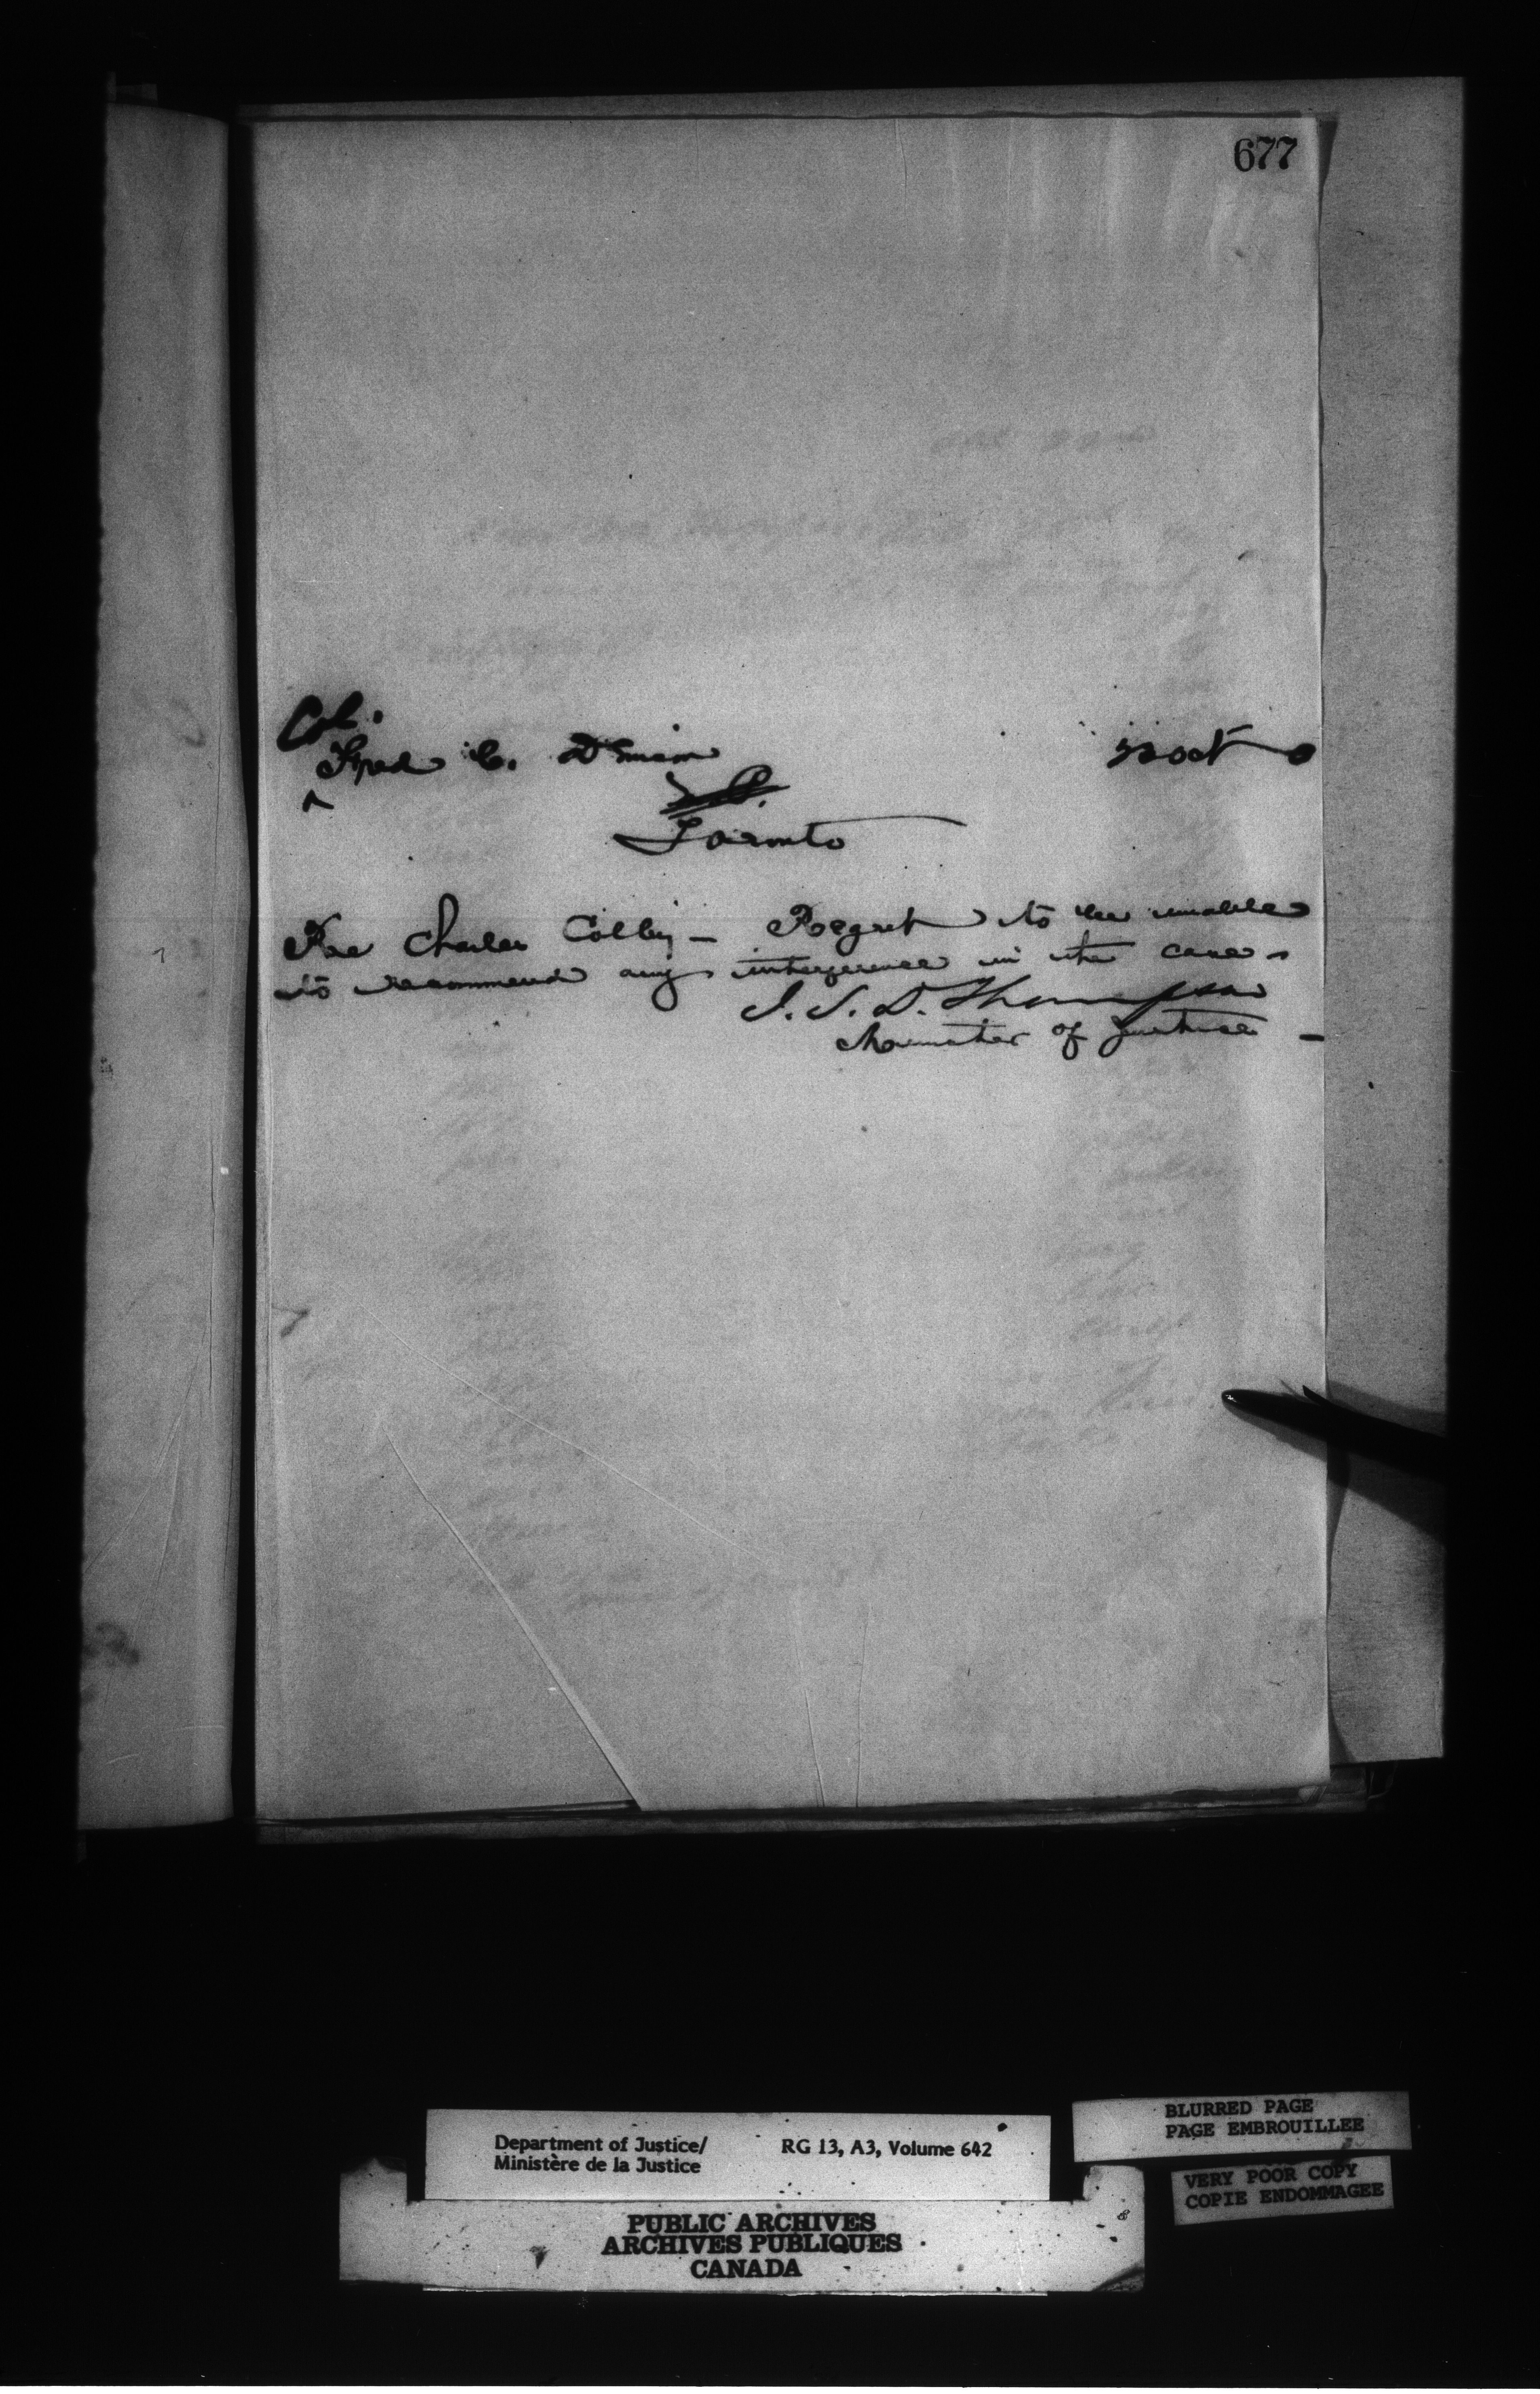 677
Col.
Fred C. Denison
22 Oct
Toronto
Re Charles Colby - Regret to be unable
to recommend any interference in the case -
J. S. D. Thompson
Minister of Justice -
Department of Justice/ RG 13, A3, Volume 642
Ministère de la Justice
PUBLIC ARCHIVES
ARCHIVES PUBLIQUES
CANADA
BLURRED PAGE
PAGE EMBROUILLEE
VERY POOR COPY
COPIE ENDOMMAGEE